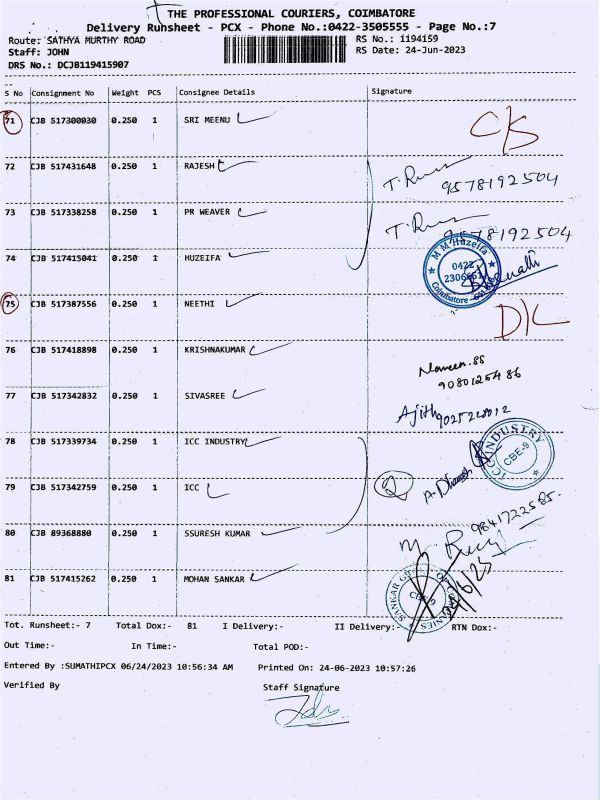 THE PROFESSIONAL COURIERS, COIMBATORE
Delivery Runsheet - PCX - Phone No.:0422-3505555 - Page No.:7
Route: SATHYA MURTHY ROAD
RS No.: 1194159
Staff: JOHN
RS Date: 24-Jun-2023
DRS No.: DCJB119415907
S No Consignment No Weight PCS Consignee Details Signature
71 CJB 517300030 0.250 1 SRI MEENU
72 CJB 517431648 0.250 1 RAJESH 9578192504
73 CJB 517338258 0.250 1 PR WEAVER 9578192504
74 CJB 517415041 0.250 1 HUZEIFA
M M Huzeifa
0422
Coimbatore
75 CJB 517387556 0.250 1 NEETHI D/L
76 CJB 517418898 0.250 1 KRISHNAKUMAR Naveen.SS
9080125486
77 CJB 517342832 0.250 1 SIVASREE Ajith
78 CJB 517339734 0.250 1 ICC INDUSTRY
ICC INDUSTRY
CBE-9
79 CJB 517342759 0.250 1 ICC
9841722585.
80 CJB 89368880 0.250 1 SSURESH KUMAR
81 CJB 517415262 0.250 1 MOHAN SANKAR
CBE-9
Tot. Runsheet:- 7 Total Dox:- 81 I Delivery:- II Delivery:- RTN Dox:-
Out Time:- In Time:- Total POD:-
Entered By :SUMATHIPCX 06/24/2023 10:56:34 AM Printed On: 24-06-2023 10:57:26
Verified By Staff Signature